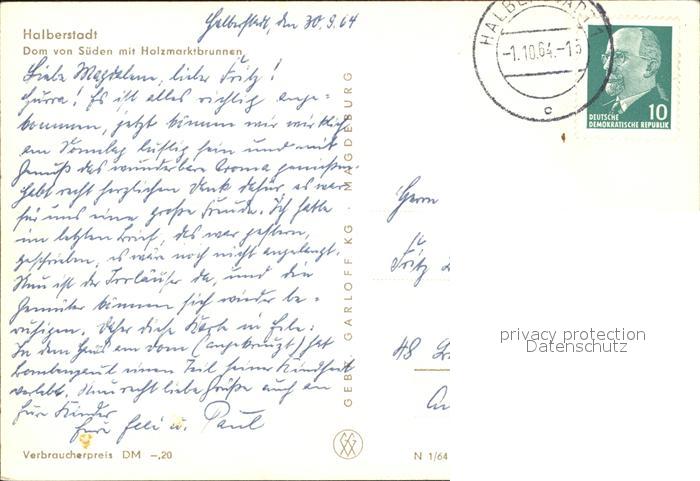 Halberstadt, den 30.9.64
Halberstadt
Dom von Süden mit Holzmarktbrunnen
Liebe Magdalene, lieber Fritz!
Hurra! Es ist alles richtig ange-
kommen, jetzt können wir wirklich
am Sonntag lustig sein und mit
Genuß das wunderbare Aroma genießen.
Habt recht herzlichen Dank dafür, es war
für uns eine große Freude. Ich hatte
im letzten Brief, das war gestern,
geschrieben, es wäre noch nicht angelangt.
Nun ist der Irrläufer da, und die
Gemüter können sich wieder be-
ruhigen. Daher diese Karte in Eile:
In dem Haus am Dom (angekreuzt) hat
einen Teil seiner Kindheit
verlebt. Nun recht liebe Grüße auch an
Eure Kinder
Eure u. Paul
Verbraucherpreis DM -,20
GEBR. GARLOFF KG · MAGDEBURG
N 1/64
HALBERSTADT 1
-1.10.64.-15
c
10
DEUTSCHE
DEMOKRATISCHE REPUBLIK
Herrn
Fritz
48
privacy protection
Datenschutz